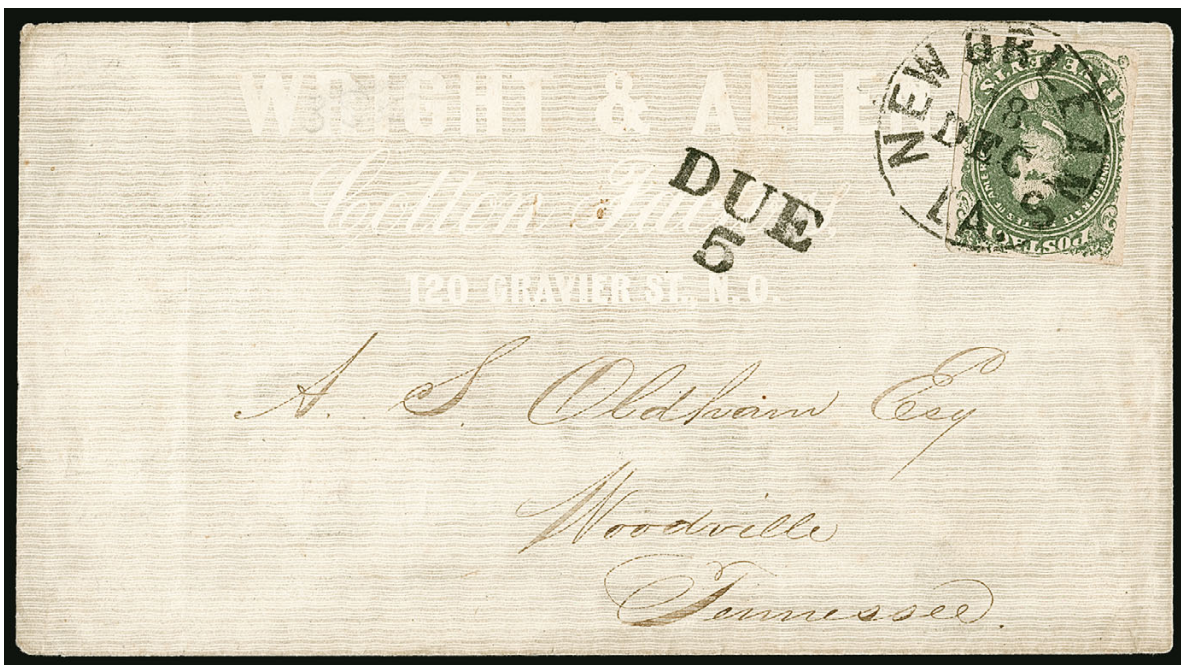 WRIGHT & ALLEN
Cotton Factors,
120 GRAVIER ST., N. O.
NEW ORLEANS
LA.
8
DEC
DUE
5
A. S. Oldham Esq
Woodville
Tennessee.